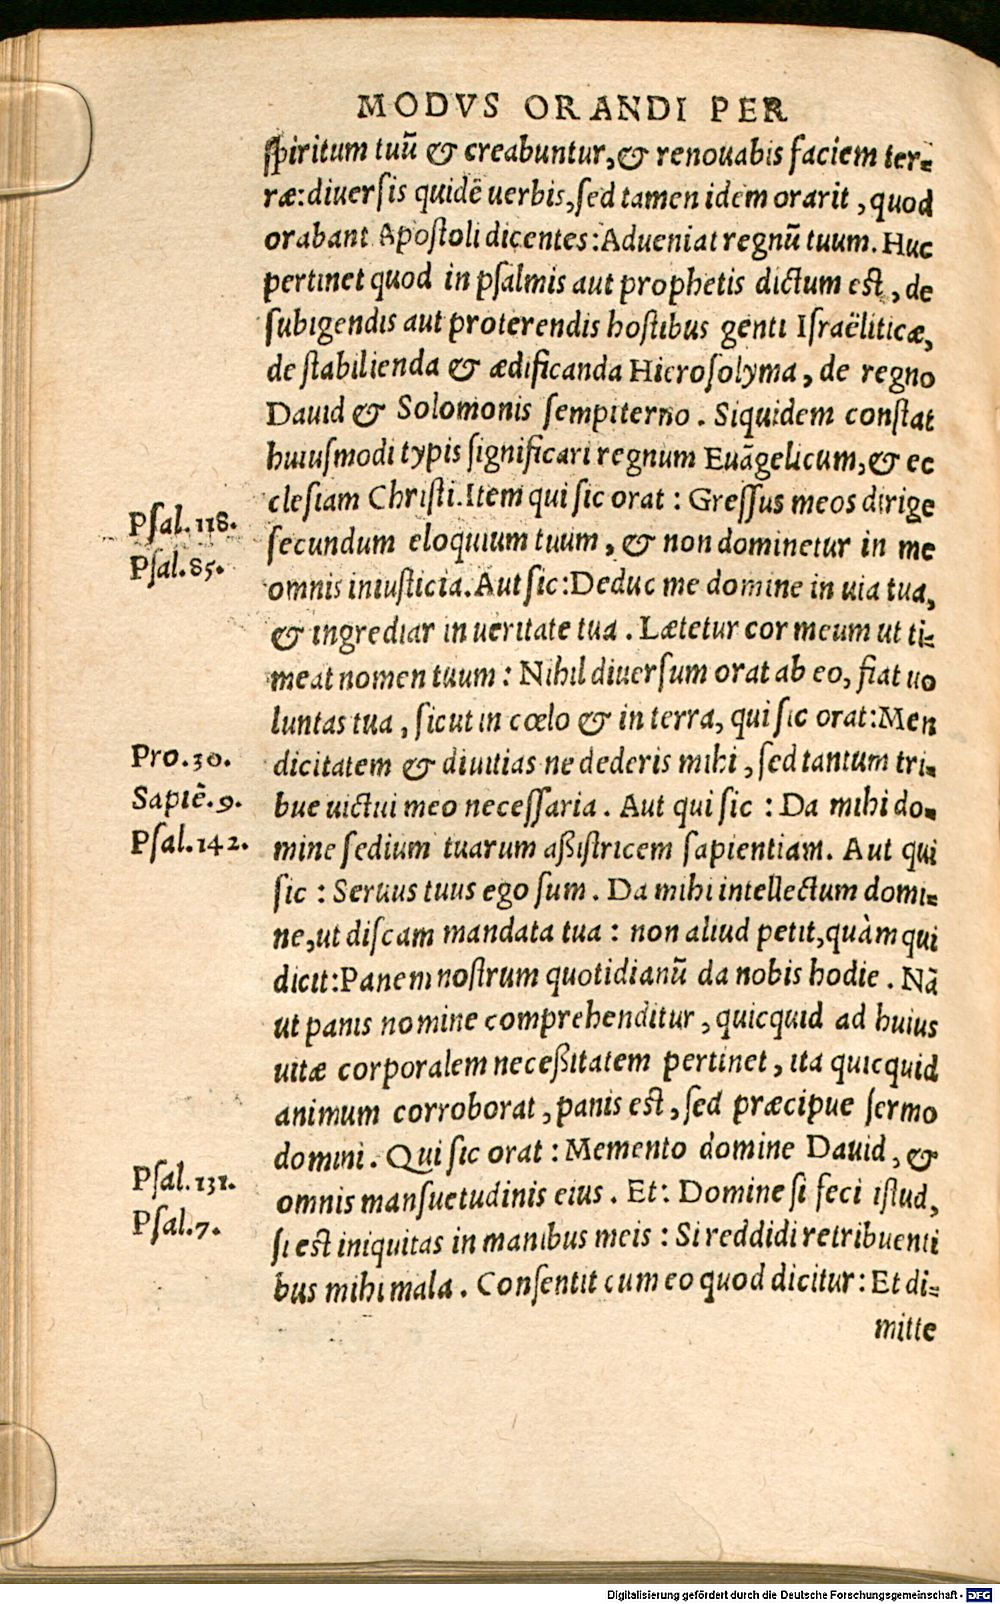 MODVS ORANDI PER
spiritum tuū & creabuntur,& renouabis faciem ter-
ræ:diuersis quidē uerbis,sed tamen idem orarit, quod
orabant Apostoli dicentes:Adueniat regnū tuum. Huc
pertinet quod in psalmis aut prophetis dictum est, de
subigendis aut proterendis hostibus genti Israëliticæ,
de stabilienda & ædificanda Hierosolyma, de regno
Dauid & Solomonis sempiterno. Siquidem constat
huiusmodi typis significari regnum Euāgelicum,& ec
clesiam Christi.Item qui sic orat: Gressus meos dirige
Psal.118.
secundum eloquium tuum, & non dominetur in me
Psal.85.
omnis iniusticia.Aut sic:Deduc me domine in uia tua,
& ingrediar in ueritate tua. Lætetur cor meum ut ti-
meat nomen tuum: Nihil diuersum orat ab eo, fiat uo
luntas tua, sicut in cœlo & in terra, qui sic orat:Men
Pro.30.
dicitatem & diuitias ne dederis mihi, sed tantum tri-
Sapiē.9.
bue uictui meo necessaria. Aut qui sic: Da mihi do-
Psal.142.
mine sedium tuarum aßistricem sapientiam. Aut qui
sic: Seruus tuus ego sum. Da mihi intellectum domi-
ne,ut discam mandata tua: non aliud petit,quàm qui
dicit:Panem nostrum quotidianū da nobis hodie. Nā
ut panis nomine comprehenditur, quicquid ad huius
uitæ corporalem neceßitatem pertinet, ita quicquid
animum corroborat, panis est, sed præcipue sermo
domini. Qui sic orat: Memento domine Dauid, &
Psal.131.
omnis mansuetudinis eius. Et: Domine si feci istud,
Psal.7.
si est iniquitas in manibus meis: Si reddidi retribuenti
bus mihi mala. Consentit cum eo quod dicitur: Et di-
mitte
Digitalisierung gefördert durch die Deutsche Forschungsgemeinschaft - DFG